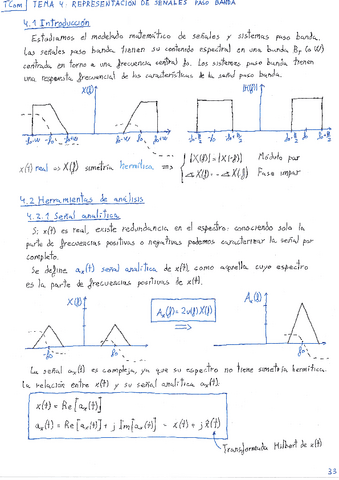 TCom TEMA 4: REPRESENTACIÓN DE SEÑALES PASO BANDA
4.1 Introducción
Estudiamos el modelado matemático de señales y sistemas paso banda.
Las señales paso banda tienen su contenido espectral en una banda B, (o W)
centrada en torno a una frecuencia central fo. Los sistemas paso banda tienen
una respuesta frecuencial de las características de la señal paso banda.
X(f) |H(f)|
x(t) real ⇔ X(f) simetría hermítica ⟹ { |X(f)| = |X(-f)| Módulo par
∠X(f) = -∠X(-f) Fase impar
4.2. Herramientas de análisis
4.2.1 Señal analítica
Si x(t) es real, existe redundancia en el espectro: conociendo solo la
parte de frecuencias positivas o negativas podemos caracterizar la señal por
completo.
Se define ax(t) señal analítica de x(t), como aquella cuyo espectro
es la parte de frecuencias positivas de x(t).
X(f) Ax(f) = 2u(f)X(f) Ax(f)
⟹
-fo fo fo
La señal ax(t) es compleja, ya que su espectro no tiene simetría hermítica.
La relación entre x(t) y su señal analítica ax(t):
x(t) = Re[ax(t)]
ax(t) = Re[ax(t)] + j Im[ax(t)] = x(t) + j x̂(t)
Transformada Hilbert de x(t)
33